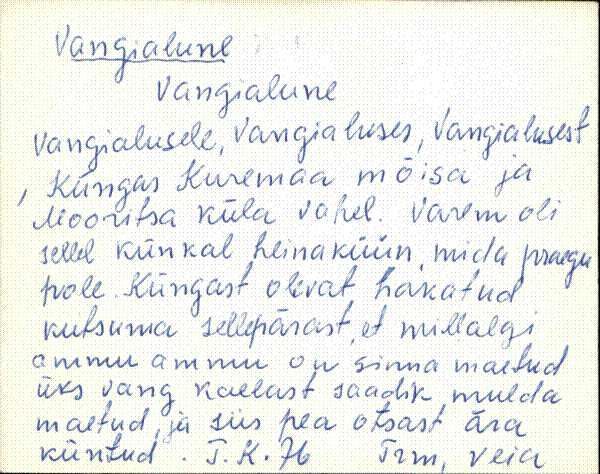 Vangialune
Vangialune
Vangialusele, Vangialuses, Vangialusest
, Küngas Kuremaa mõisa ja
Mooritsa küla vahel. Varem oli
sellel künkal heinaküün, mida praegu
pole. Küngast olevat hakatud
kutsuma sellepärast, et millalgi
ammu ammu on sinna maetud
üks vang kaelast saadik mulda
maetud, ja siis pea otsast ära
küntud. T. K. 76 Trm, Veia